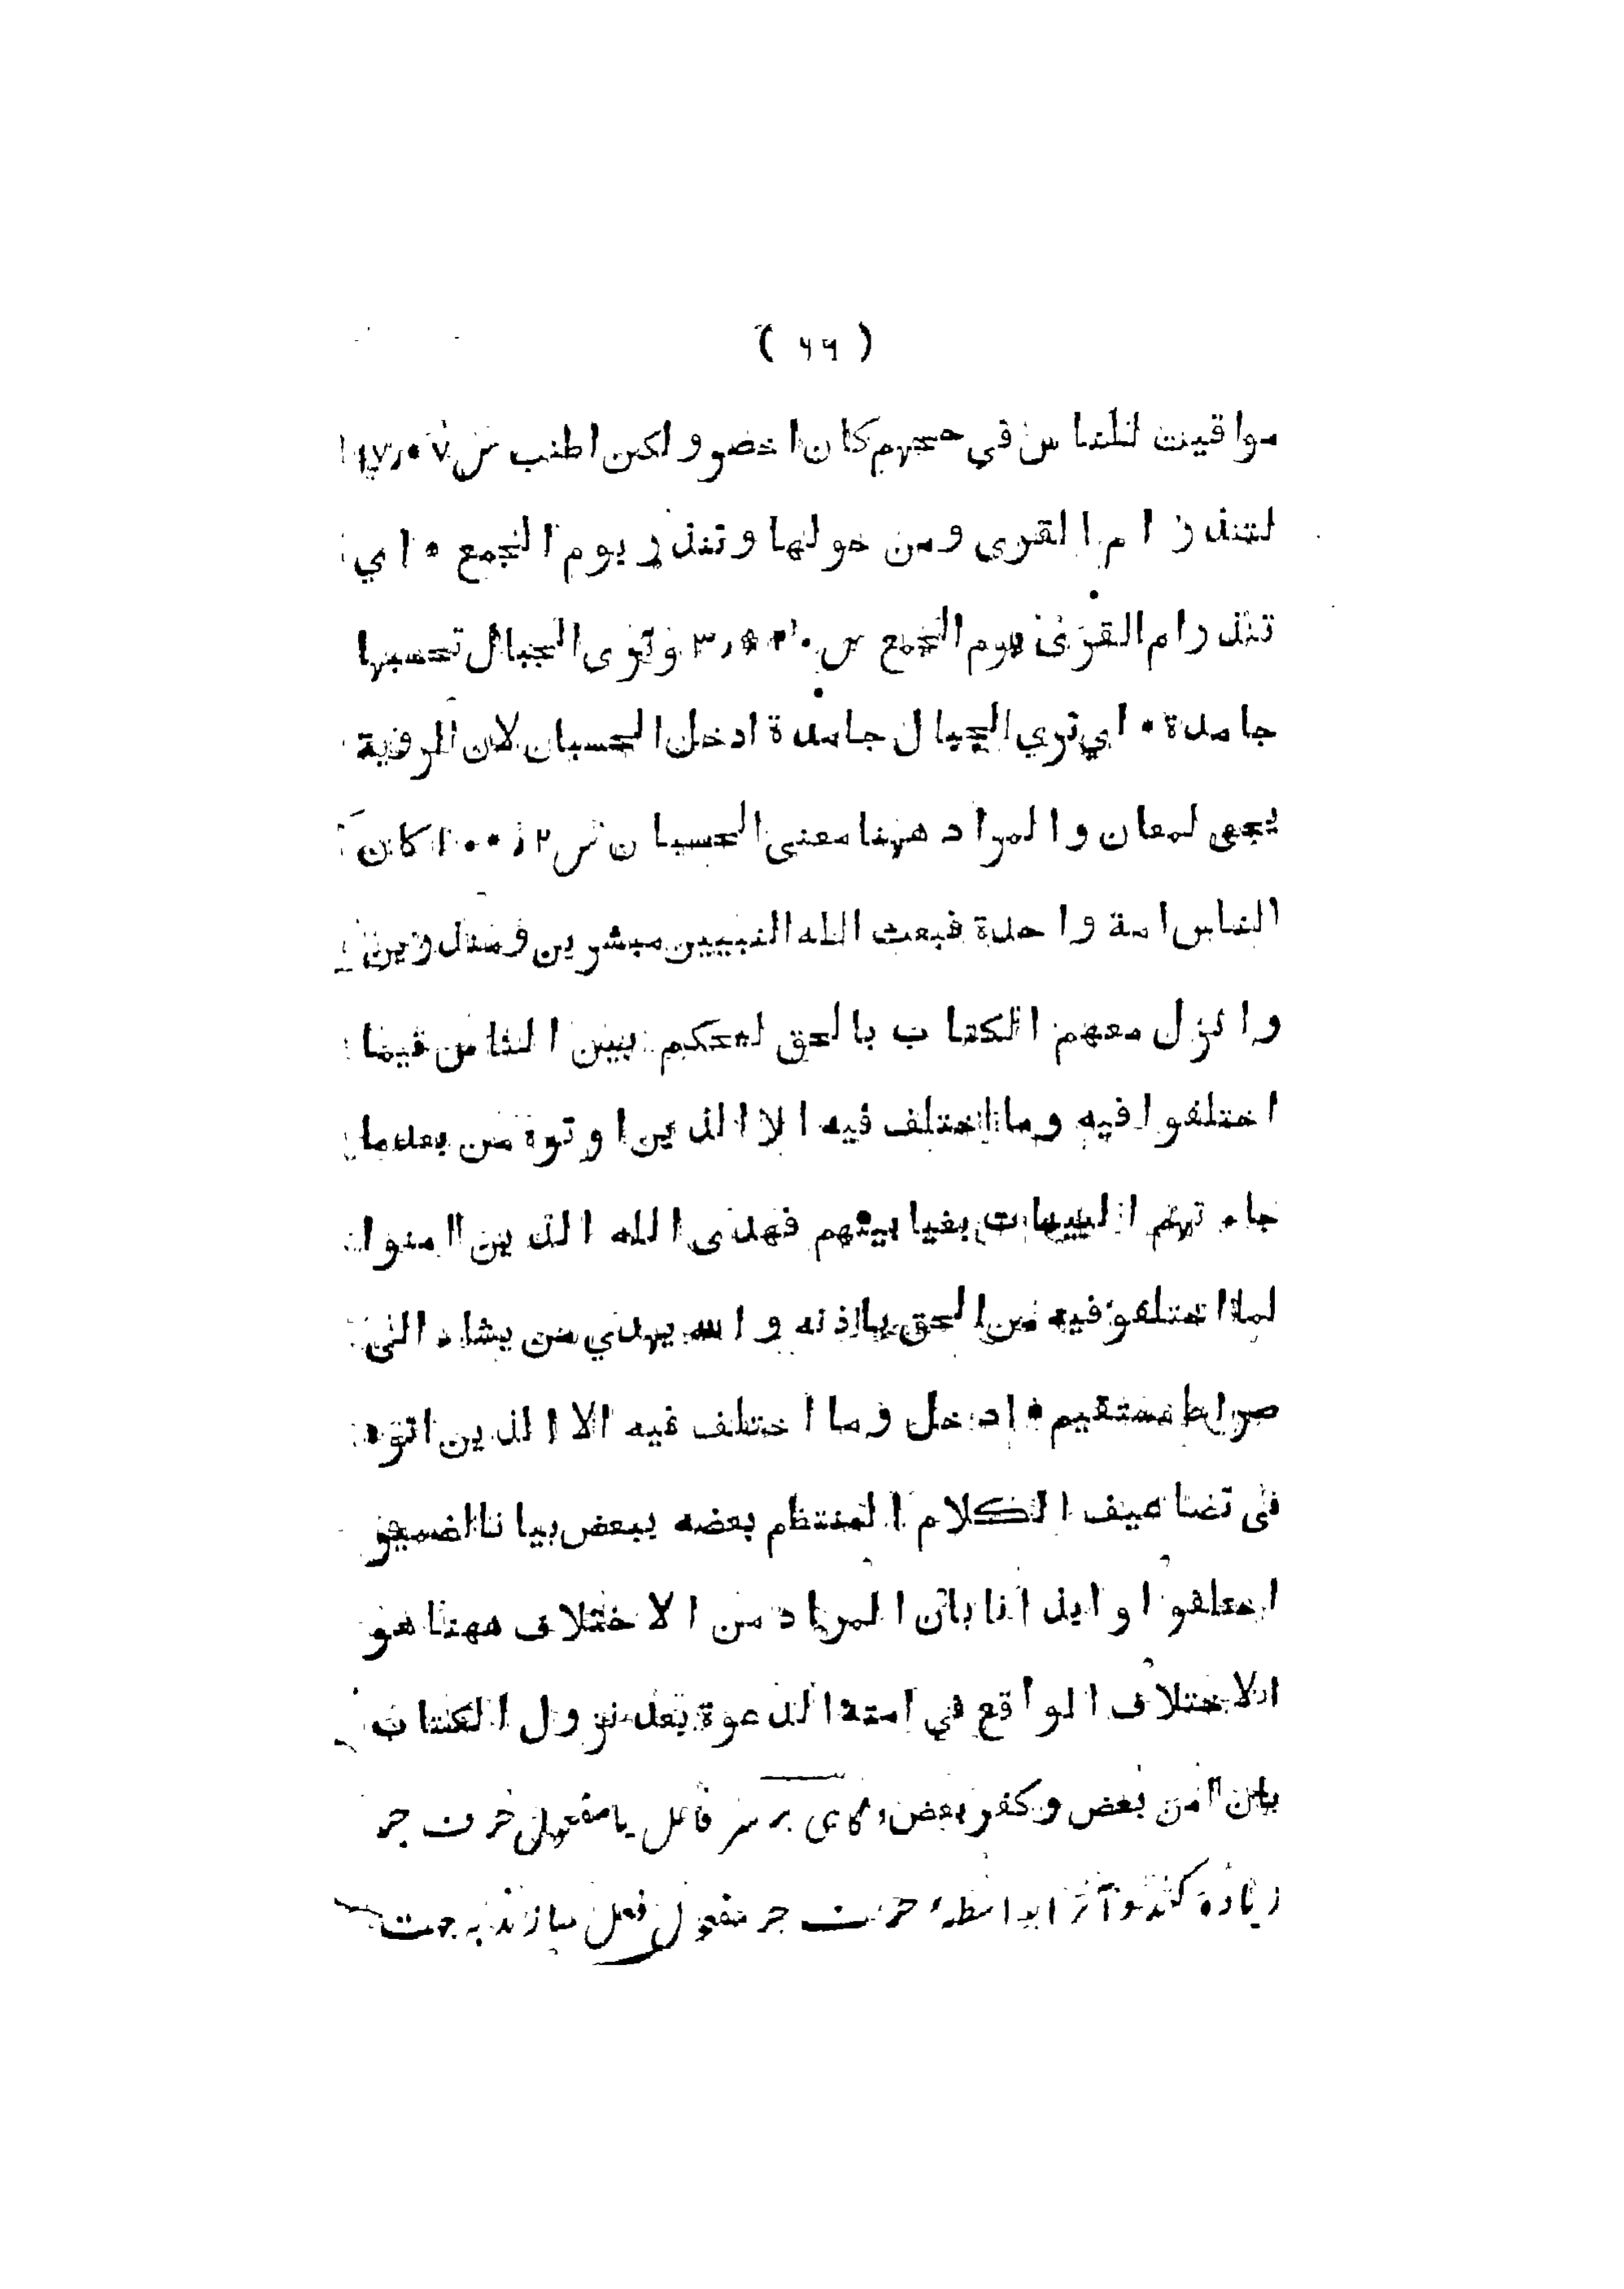 ( ٦٦ )
مواقيت للناس في حجهم كان اخصر ولكن اطنب س
لتنذر ام القرى ومن حولها وتنذر يوم الجمع * اي
تنذر ام القرى يوم الجمع س وترى الجبال تحسبها
جامدة * اي تري الجبال جامدة ادخل الحسبان لان الروية
يجى لمعان والمراد ههنا معنى الحسبان س كان
الناس امة واحدة فبعث الله النبيين مبشرين ومنذرين
وانزل معهم الكتاب بالحق ليحكم بين الناس فيما
اختلفوا فيه وما اختلف فيه الا الذين اوتوه من بعد ما
جاءتهم البينات بغيا بينهم فهدى الله الذين اامنوا
لما اختلفو فيه من الحق باذنه والله يهدي من يشاء الى
صراط مستقيم * ادخل وما اختلف فيه الا الذين اتوه
فى تضاعيف الكلام المنتظم بعضه ببعض بيانا لضمير
اختلفوا وايذانا بان المراد من الاختلاف ههنا هو
الاختلاف الواقع في امته الدعوة بعد نزول الكتاب
بان آمن بعض وكفر بعض و گاهى بر سر فاعل يا مفعول حرف جر
زياده كنند و آنرا بواسطهٔ حرف جر مفعول فعل سازند به جهت